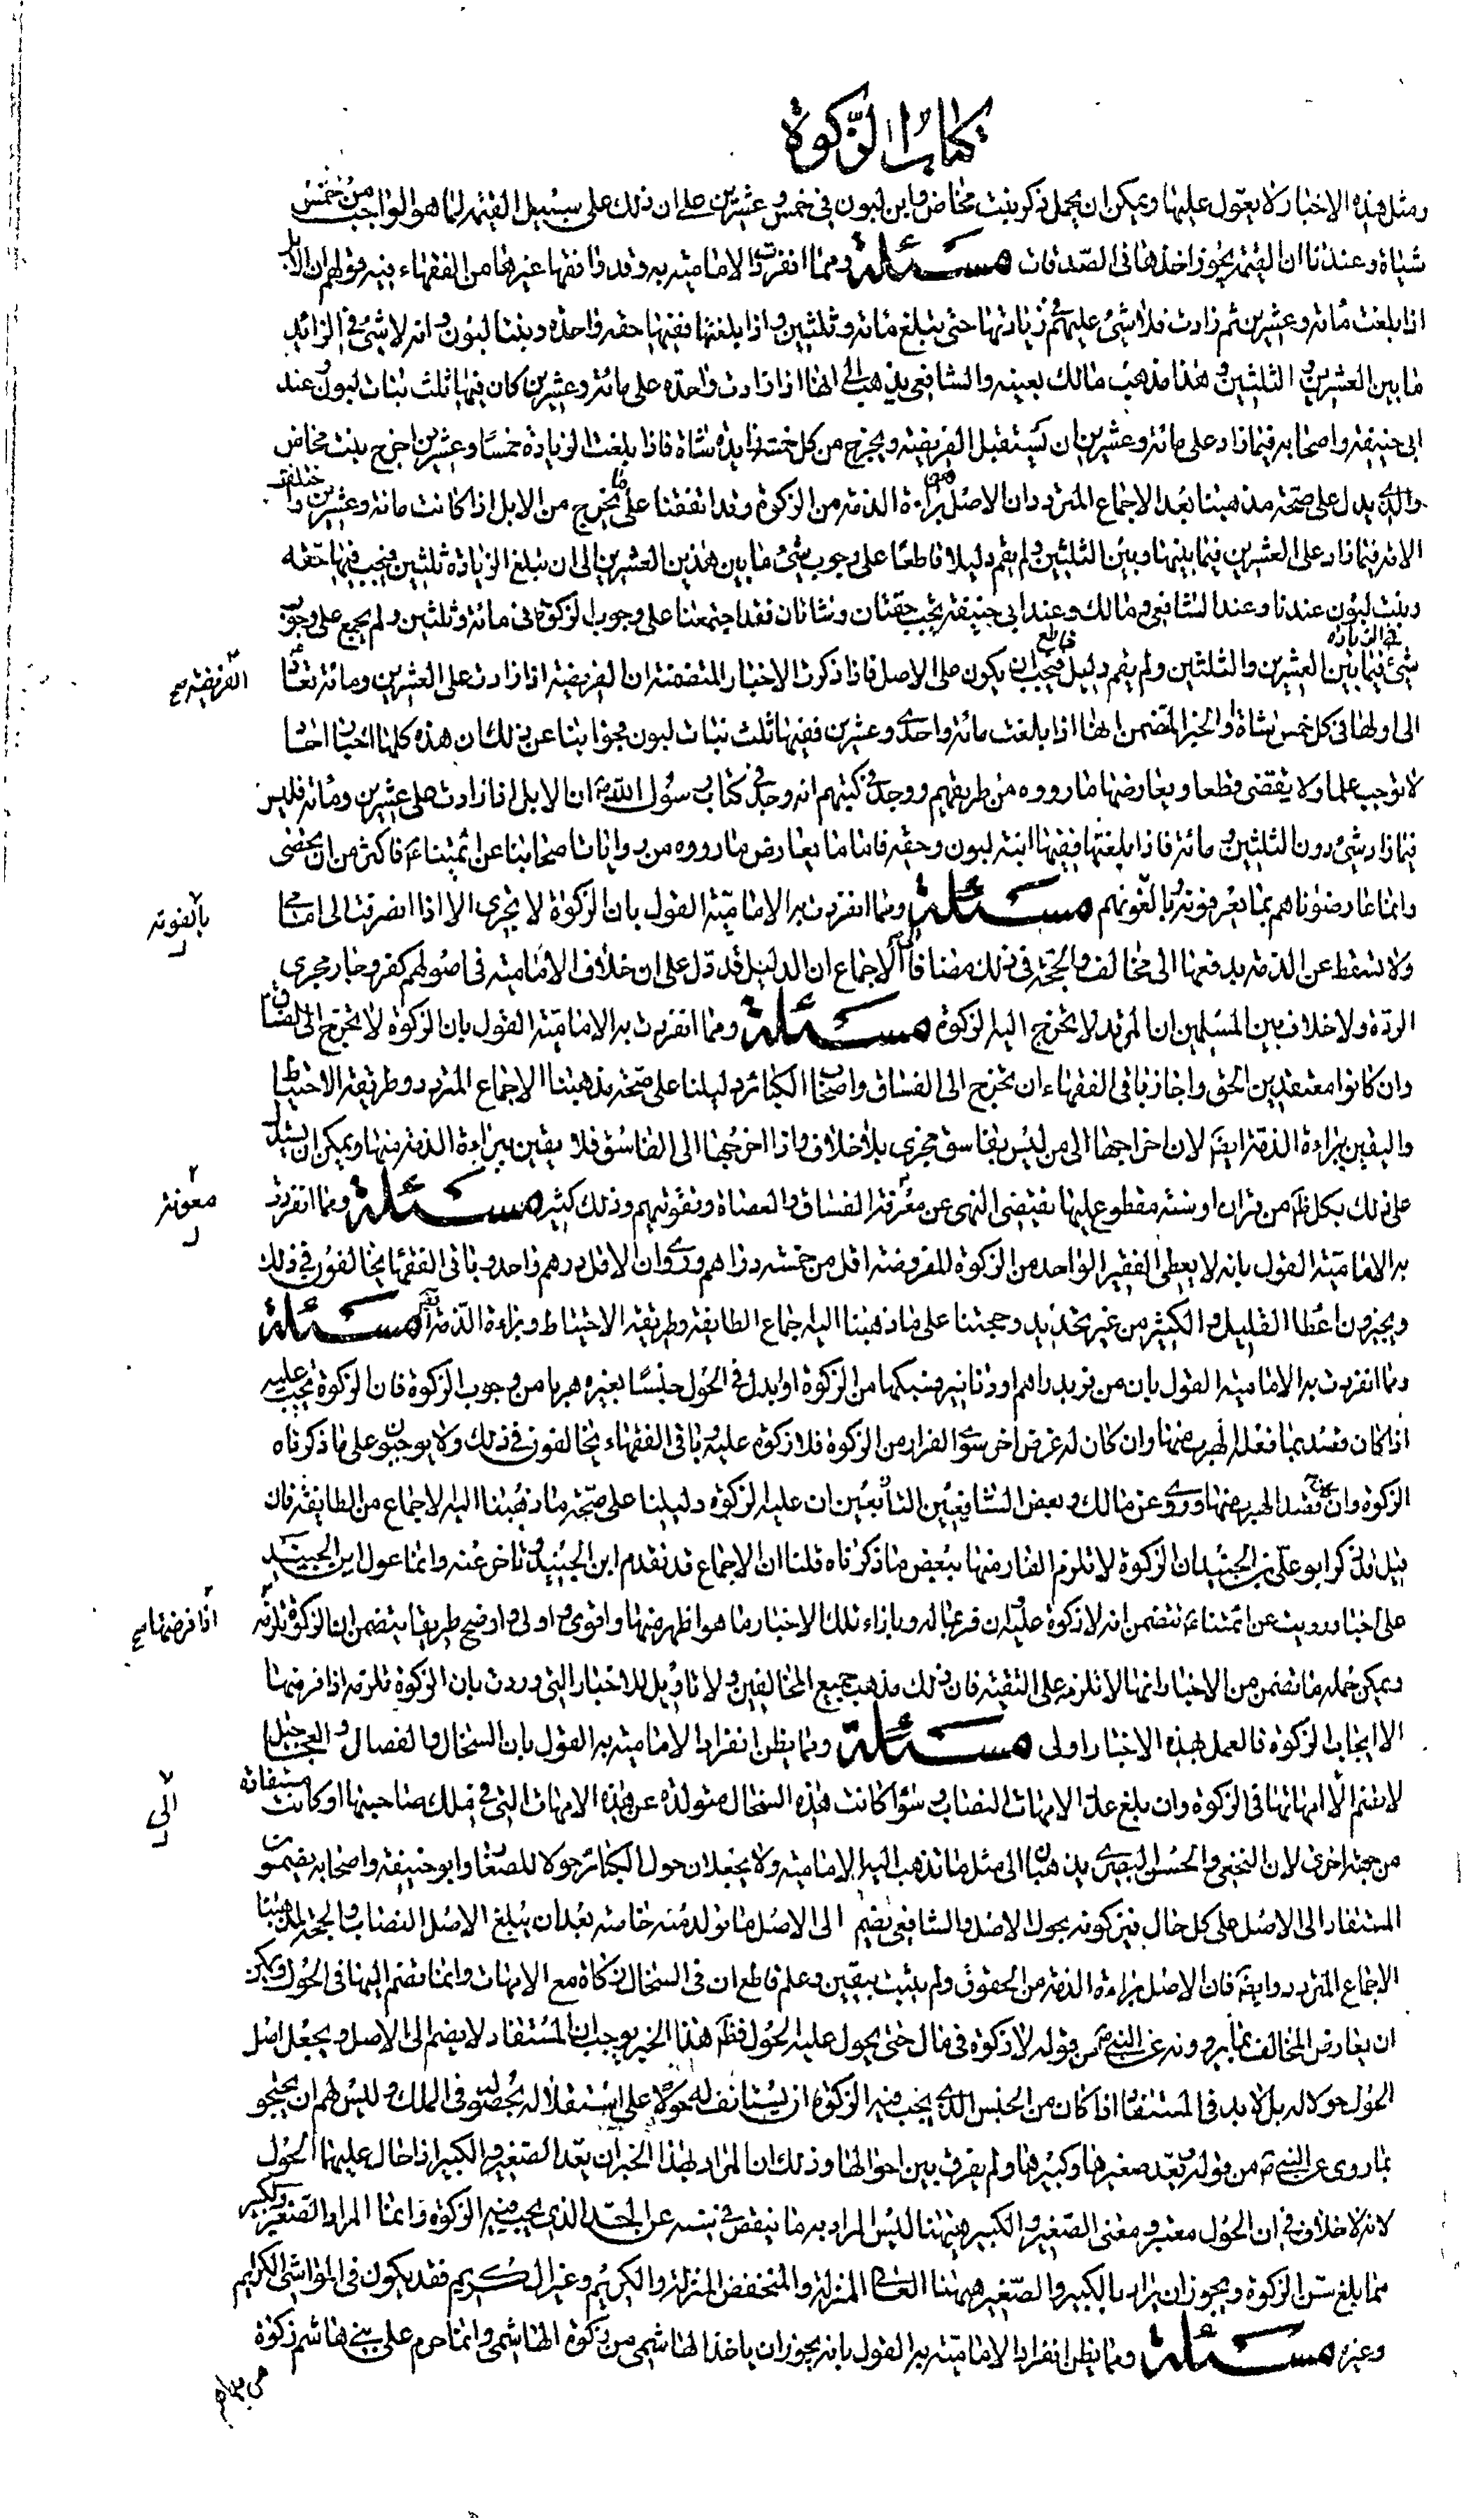 كتاب الزكوة
ومثل هذه الاخبار لا يعول عليها ويمكن ان يحمل ذكر بنت مخاض وابن لبون في خمس وعشرين على ان ذلك على سبيل القيمة لما هو الواجب من خمس
شياة وعندنا ان القيمة يجوز اخذها في الصدقات مسئلة ومما انفردت الامامية به وقد وافقها غيرها من الفقهاء فيه قولهم ان الابل
اذا بلغت مائة وعشرين ثم زادت فلا شئ عليهم في زيادتها حتى يبلغ مائة وثلثين واذا بلغتها ففيها حقة واحدة وبنتا لبون وانه لا شئ في الزائد
ما بين العشرين و الثلثين وهذا مذهب مالك بعينه والشافعي يذهب الى انها اذا زادت واحدة على مائة وعشرين كان فيها ثلث بنات لبون وعند
ابي حنيفة واصحابه فيما زاد على مائة وعشرين ان يستقبل الفريضة ويخرج من كل خمسة زايدة شاة فاذا بلغت الزيادة خمسا وعشرين اخرج بنت مخاض
والذي يدل على صحة مذهبنا بعد الاجماع المتردد ان الاصل هو براءة الذمة من الزكوة وقد اتفقنا على ما يخرج من الابل اذا كانت مائة وعشرين واختلفت
الامة فيما زاد على العشرين فيما بينها وبين الثلثين ولم يقم دليلا قاطعا على وجوب شئ ما بين هذين العشرين الى ان تبلغ الزيادة ثلثين فيجب فيها حقة
وبنت لبون عندنا وعند الشافعي ومالك وعند ابي حنيفة يجب حقتان وشاتان فقد اجتمعنا على وجوب الزكوة في مائة وثلثين ولم يجمع على وجوب
شئ في الزيادة فيما بين العشرين والثلثين ولم يقم دليل قاطع فيجب ان يكون على الاصل فاذا ذكرت الاخبار المتضمنة ان الفريضة اذا زادت على العشرين ومائة تعاد
الفريضة صح
الى اولها في كل خمس شاة او الخبر المتضمن انها اذا بلغت مائة واحدى وعشرين ففيها ثلث بنات لبون فجوابنا عن ذلك ان هذه كلها اخبار احاد
لا توجب علما ولا يقتضي قطعا ويعارضها ما رووه من طريقهم ووجد في كتبهم انه وجد في كتاب رسول الله ص ان الابل اذا زادت على عشرين ومائة فليس
فيما زاد شئ دون الثلثين و مائة فاذا بلغتها ففيها ابنة لبون وحقة فاما ما يعارض ما رووه من روايات اصحابنا عن ائمتنا ع فاكثر من ان يحصى
وانما عارضناهم بما يعرفونه يالفونهم مسئلة ومما انفردت به الامامية القول بان الزكوة لا يجزي الا اذا انصرفت الى امامي
يالفونه
ولا تسقط عن الذمة بدفعها الى مخالف والحجة في ذلك مضافا الى الاجماع ان الدليل قد دل على ان خلاف الامامية في اصولهم كفر وجار مجرى
الردة ولا خلاف بين المسلمين ان المرتد لا يخرج اليه الزكوة مسئلة ومما انفردت به الامامية القول بان الزكوة لا تخرج الى الفساق
وان كانوا معتقدين الحق واجاز باقي الفقهاء ان تخرج الى الفساق واصحاب الكبائر دليلنا على صحة مذهبنا الاجماع المتردد وطريقة الاحتياط
واليقين ببراءة الذمة ايضا لان اخراجها الى من ليس بفاسق مجزي بلا خلاف واذا اخرجها الى الفاسق فلا يقين ببراءة الذمة منها ويمكن ان يستدل
على ذلك بكل ظ من قران او سنة مقطوع عليها يقتضي النهي عن معرفة الفساق والعصاة وتقوتيهم وذلك كثير مسئلة ومما انفردت
معونة
به الامامية القول بانه لا يعطى الفقير الواحد من الزكوة المفروضة اقل من خمسة دراهم وروى ان الاقل درهم واحد وباقي الفقها يخالفون في ذلك
ويجيزون اعطا القليل والكثير من غير تحديد وحجتنا على ما ذهبنا اليه اجماع الطايفة وطريقة الاحتياط وبراءة الذمة ايض مسئلة
ومما انفردت به الامامية القول بان من فر بدراهم او دنانير فسبكها من الزكوة او ابدل في الحول جنسا بغيره هربا من وجوب الزكوة فان الزكوة تجب عليه
اذا كان قصد بما فعله الهرب منها وان كان له غرض اخر سوى الفرار من الزكوة فلا زكوة عليه وباقي الفقهاء يخالفون في ذلك ولا يوجبون على ما ذكرناه
الزكوة وان كان قصد الهرب منها وروى عن مالك وبعض الشافعيين التابعين ان عليه الزكوة دليلنا على صحة ما ذهبنا اليه الاجماع من الطايفة فان
قيل قد ذكر ابو علي بن الجنيد ان الزكوة لا تلزم الفار منها ببعض ما ذكرناه قلنا ان الاجماع قد تقدم ابن الجنيد وتاخر عنه وانما عول ابن الجنيد
على اخبار رويت عن ائمتنا ع تتضمن انه لا زكوة عليه ان فر بماله وبازاء تلك الاخبار ما هو اظهر منها واقوى واولى واوضح طريقا يتضمن ان الزكوة تلزمه
اذا فر منها صح
ويمكن حمل ما تضمن من الاخبار انها لا تلزمه على التقية فان ذلك مذهب جميع المخالفين ولا تاويل للاخبار التي وردت بان الزكوة تلزمه اذا فر منها
الا ايجاب الزكوة فالعمل بهذه الاخبار اولى مسئلة ومما يظن انفراد الامامية به القول بان السخال والفصال والعجاجيل
لا يضم الا امهاتها في الزكوة وان بلغ عدد الامهات النصاب وسوا كانت هذه السخال متولدة عن هذه الامهات التي في ملك صاحبها او كانت مستفادة
الى
من جهة اخرى لان النخعي والحسن البصري يذهبان الى مثل ما تذهب اليه الامامية ولا يجعلان حول الكبائر حولا للصغار وابو حنيفة واصحابه يضمون
المستفاد الى الاصل على كل حال فيزكونه بحول الاصل والشافعي يضم الى الاصل ما تولد منه خاصة بعد ان يبلغ الاصل النصاب والحجة لمذهبنا
الاجماع المتردد وايضا فان الاصل براءة الذمة من الحقوق ولم يثبت بيقين وعلم قاطع ان في السخال زكاة مع الامهات وانما تضم اليها في الحول ويمكن
ان يعارض المخالف بما يروونه عن النبي ص من قوله لا زكوة في مال حتى يحول عليه الحول فظ هذا الخبر يوجب ان المستفاد لا يضم الى الاصل ويجعل اصل
الحول حولا له بل لا بد في المستفاد اذا كان من الجنس الذي يجب فيه الزكوة ان يستانف له حولا على استقلاله بحصوله في الملك وليس لهم ان يحتجوا
بما روي عن النبي ص من قوله يعد صغيرها وكبيرها ولم يفرق بين احوالها وذلك ان المراد بهذا الخبر ان يعد الصغير والكبير اذا حال عليهما الحول
لانه لا خلاف في ان الحول معتبر ومعنى الصغير والكبير ههنا ليس المراد به ما ينقص في سنه عن الحد الذي يجب فيه الزكوة وانما المراد الصغير والكبير
مما بلغ سن الزكوة ويجوز ان يراد بالكبير والصغير ههنا العالي المنزلة والمنخفض المنزلة والكريم وغير الكريم فقد يكون في المواشي الكريم
وغيره مسئلة ومما يظن انفراد الامامية به القول بانه يجوز ان ياخذ الهاشمي من زكوة الهاشمي وانما حرم على بني هاشم زكوة